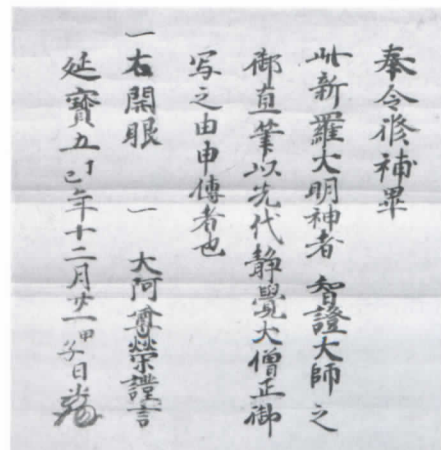 奉令修補畢
此新羅大明神者 智證大師之
御直筆以先代靜覺大僧正御
写之由申傳者也
一右開眼 一 大阿尊榮謹言
延寶五丁巳年十二月廿一甲子日